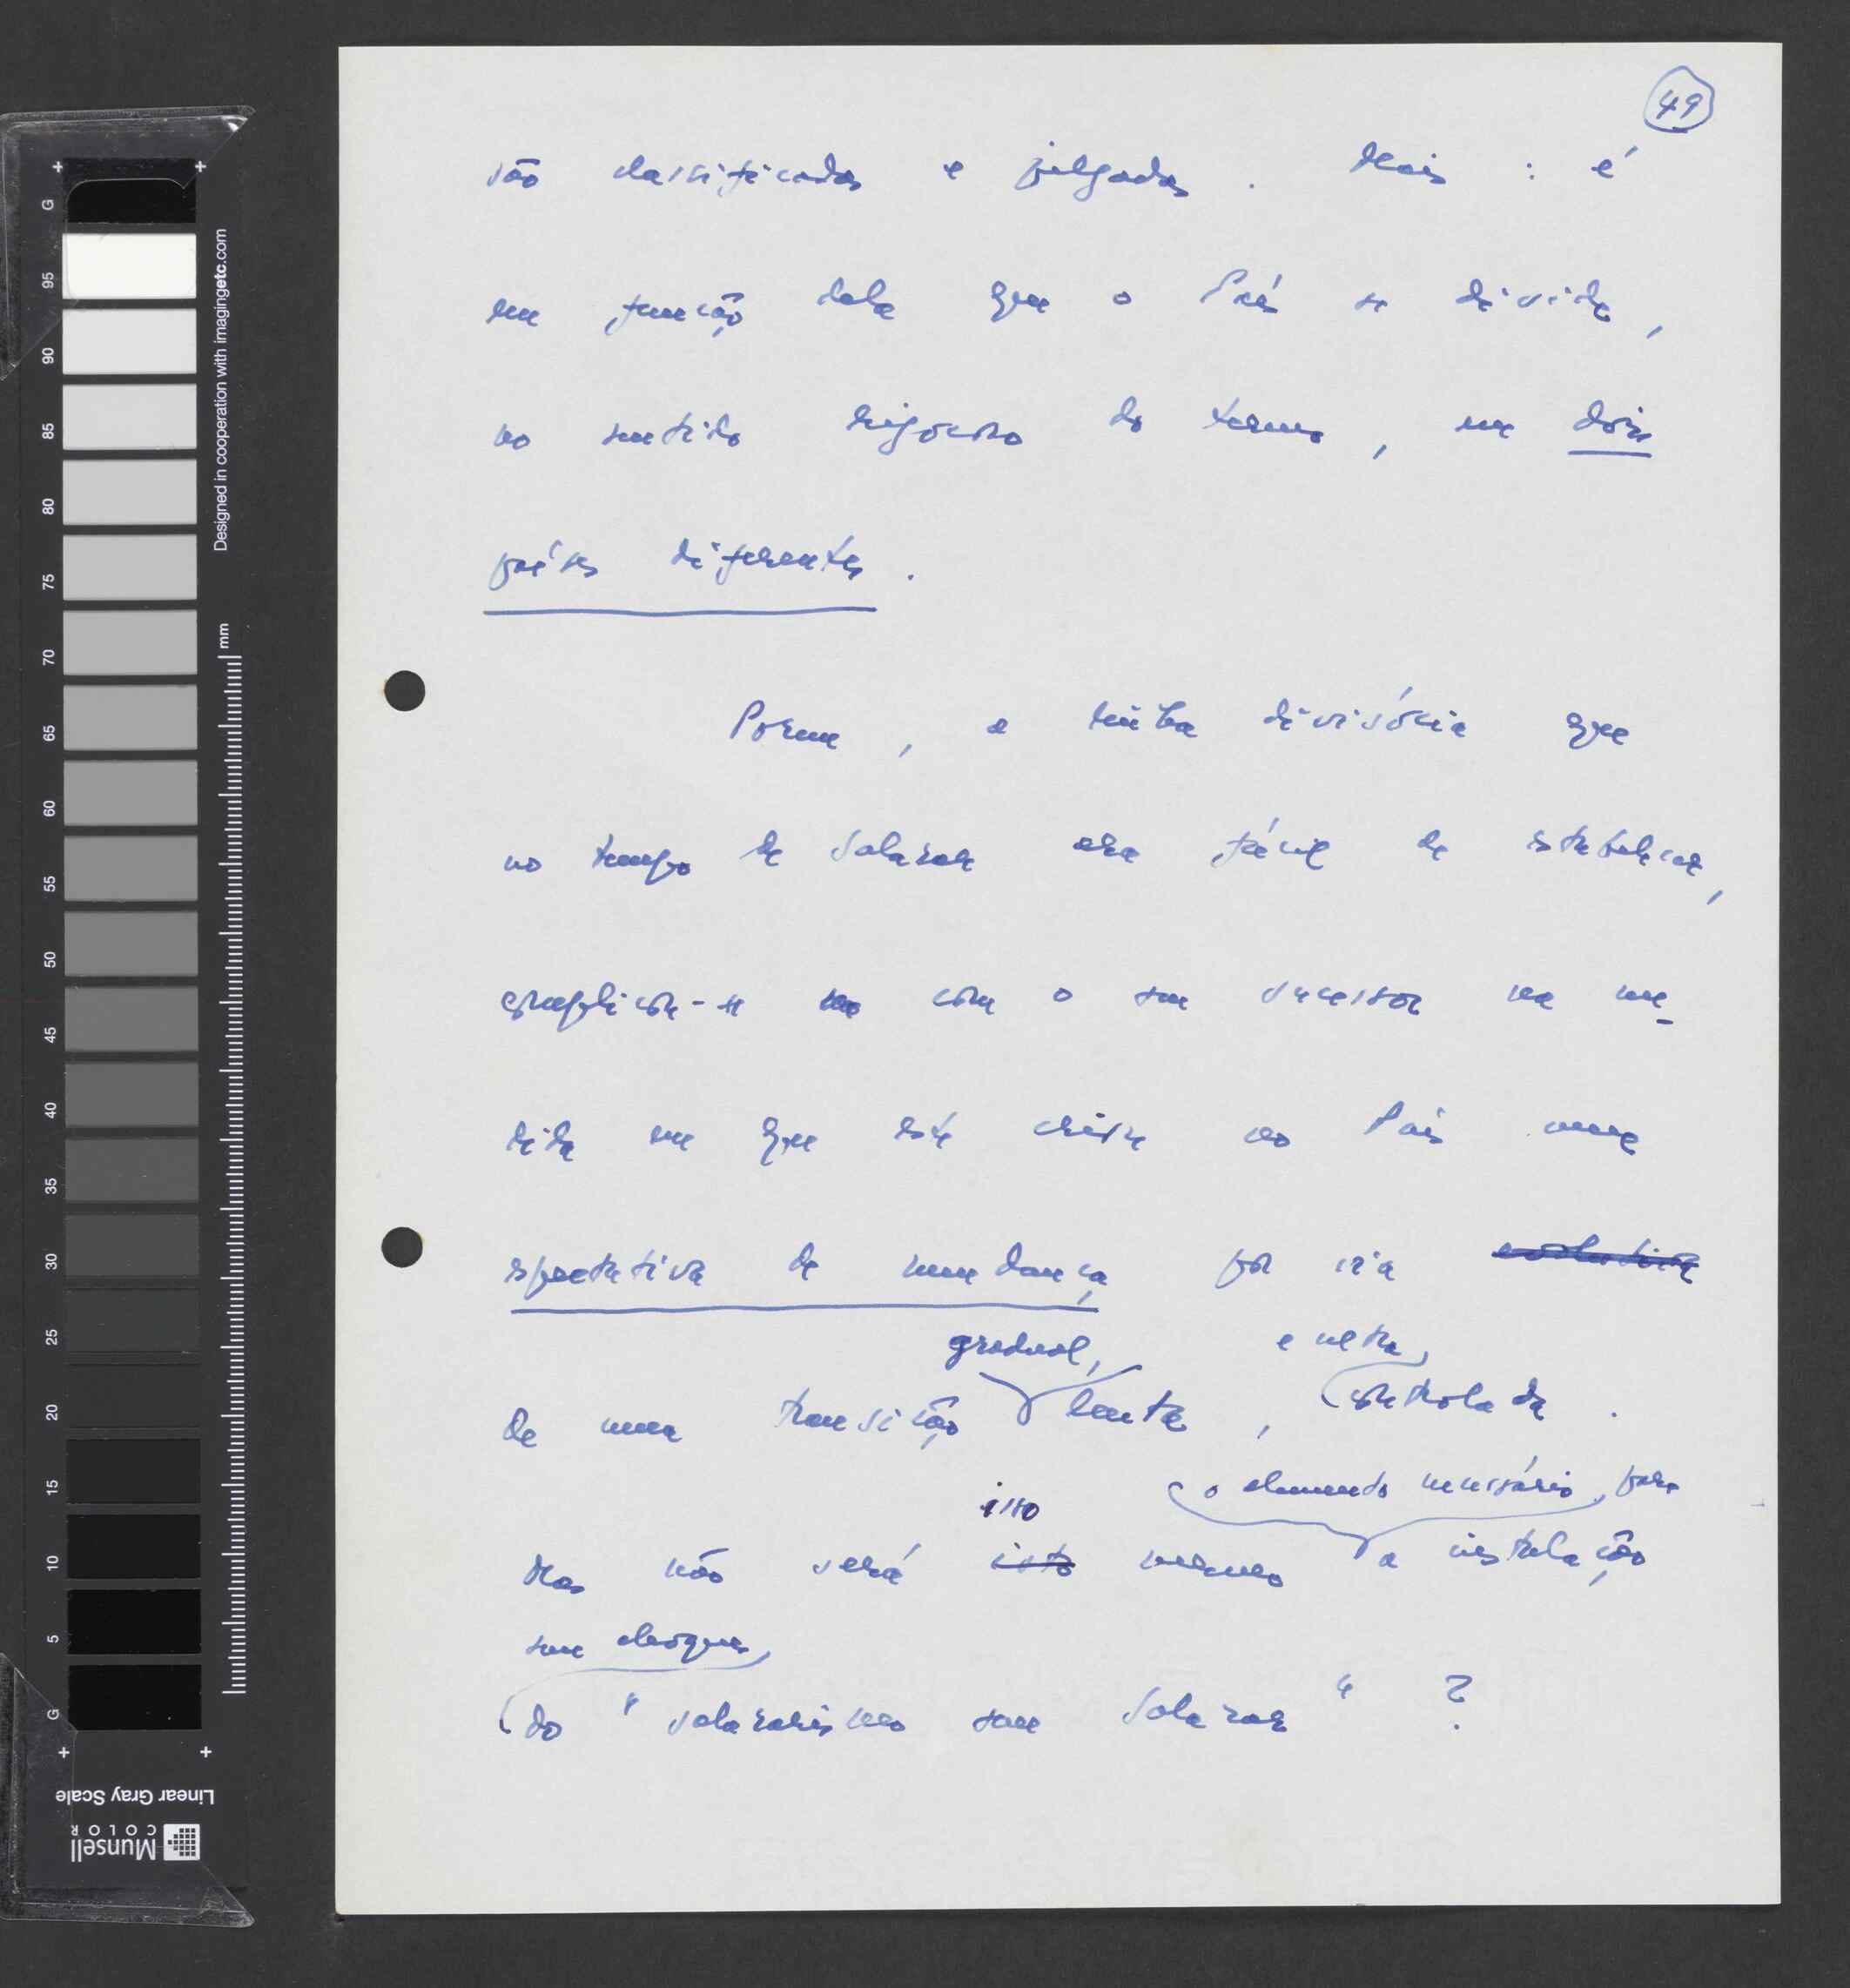 49
são classificadas e julgadas. Mais: é
em função dela que o País se divide,
no sentido rigoroso do termo, em dois
países diferentes.
Porem, a linha divisória que
no tempo de Salazar era fácil de estabelecer,
complicou-se com o seu sucessor na me-
dida em que este criou no País uma
espectativa de mudança por via evolutiva
gradual, e
de uma transição lenta, controlada.
isso o elemento necessário para
Mas não será isto mesmo a instalação
sem choques
do "salazarismo sem Salazar"?
G 95 90 85 80 75 70 65 60 55 50 45 40 35 30 25 20 15 10 5 G
Designed in cooperation with imagingetc.com
mm
Linear Gray Scale
Munsell
COLOR